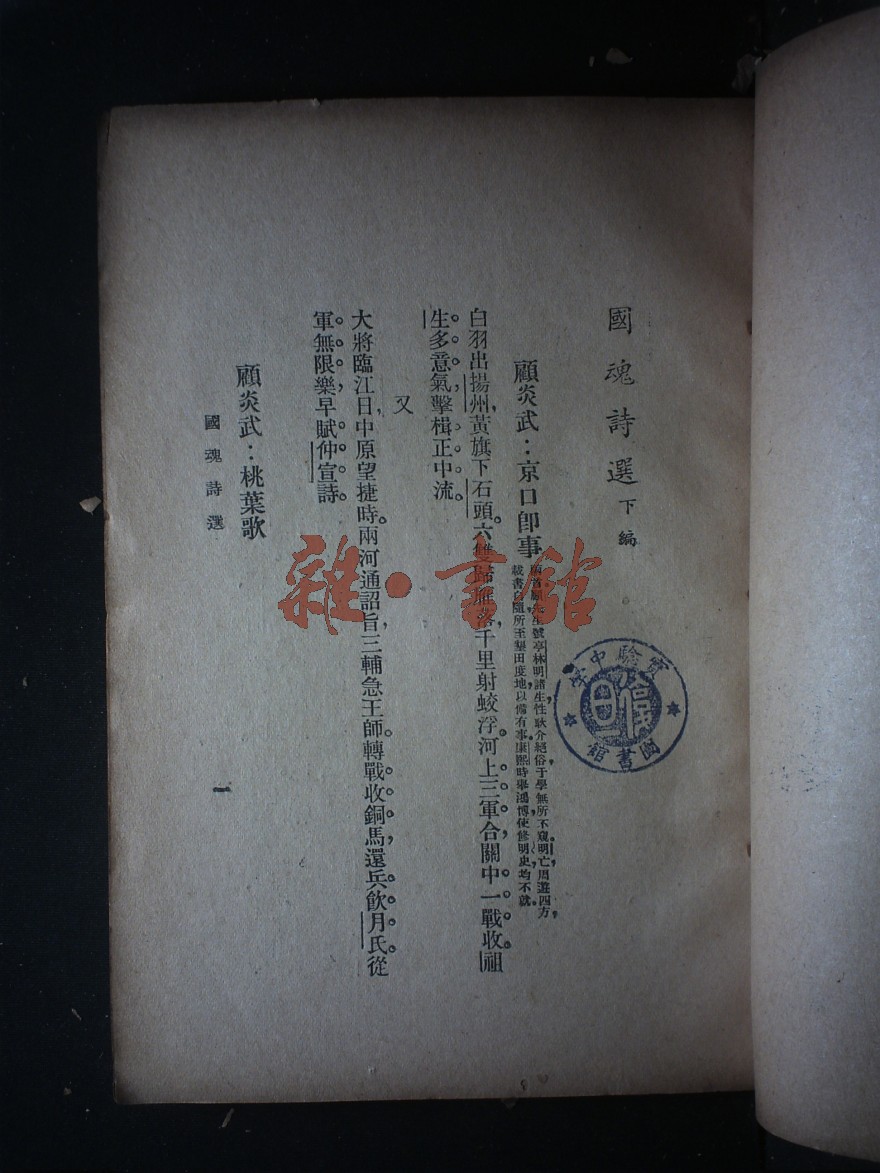 國魂詩選 下編
顧炎武：京口卽事
號亭林，明諸生，性耿介絕俗，于學無所不窺。明亡，周遊四方，
載書自隨，所至墾田度地，以備有事。康熙時舉鴻博，使修明史，均不就。
白羽出揚州，黃旗下石頭。六雙歸雁落，千里射蛟浮。河上三軍合，關中一戰收。祖
生多意氣，擊楫正中流。
又
大將臨江日，中原望捷時。兩河通詔旨，三輔急王師。轉戰收銅馬，還兵飲月氏。從
軍無限樂，早賦仲宣詩。
顧炎武：桃葉歌
國魂詩選
一
雜·書館
實驗中學
圖書館